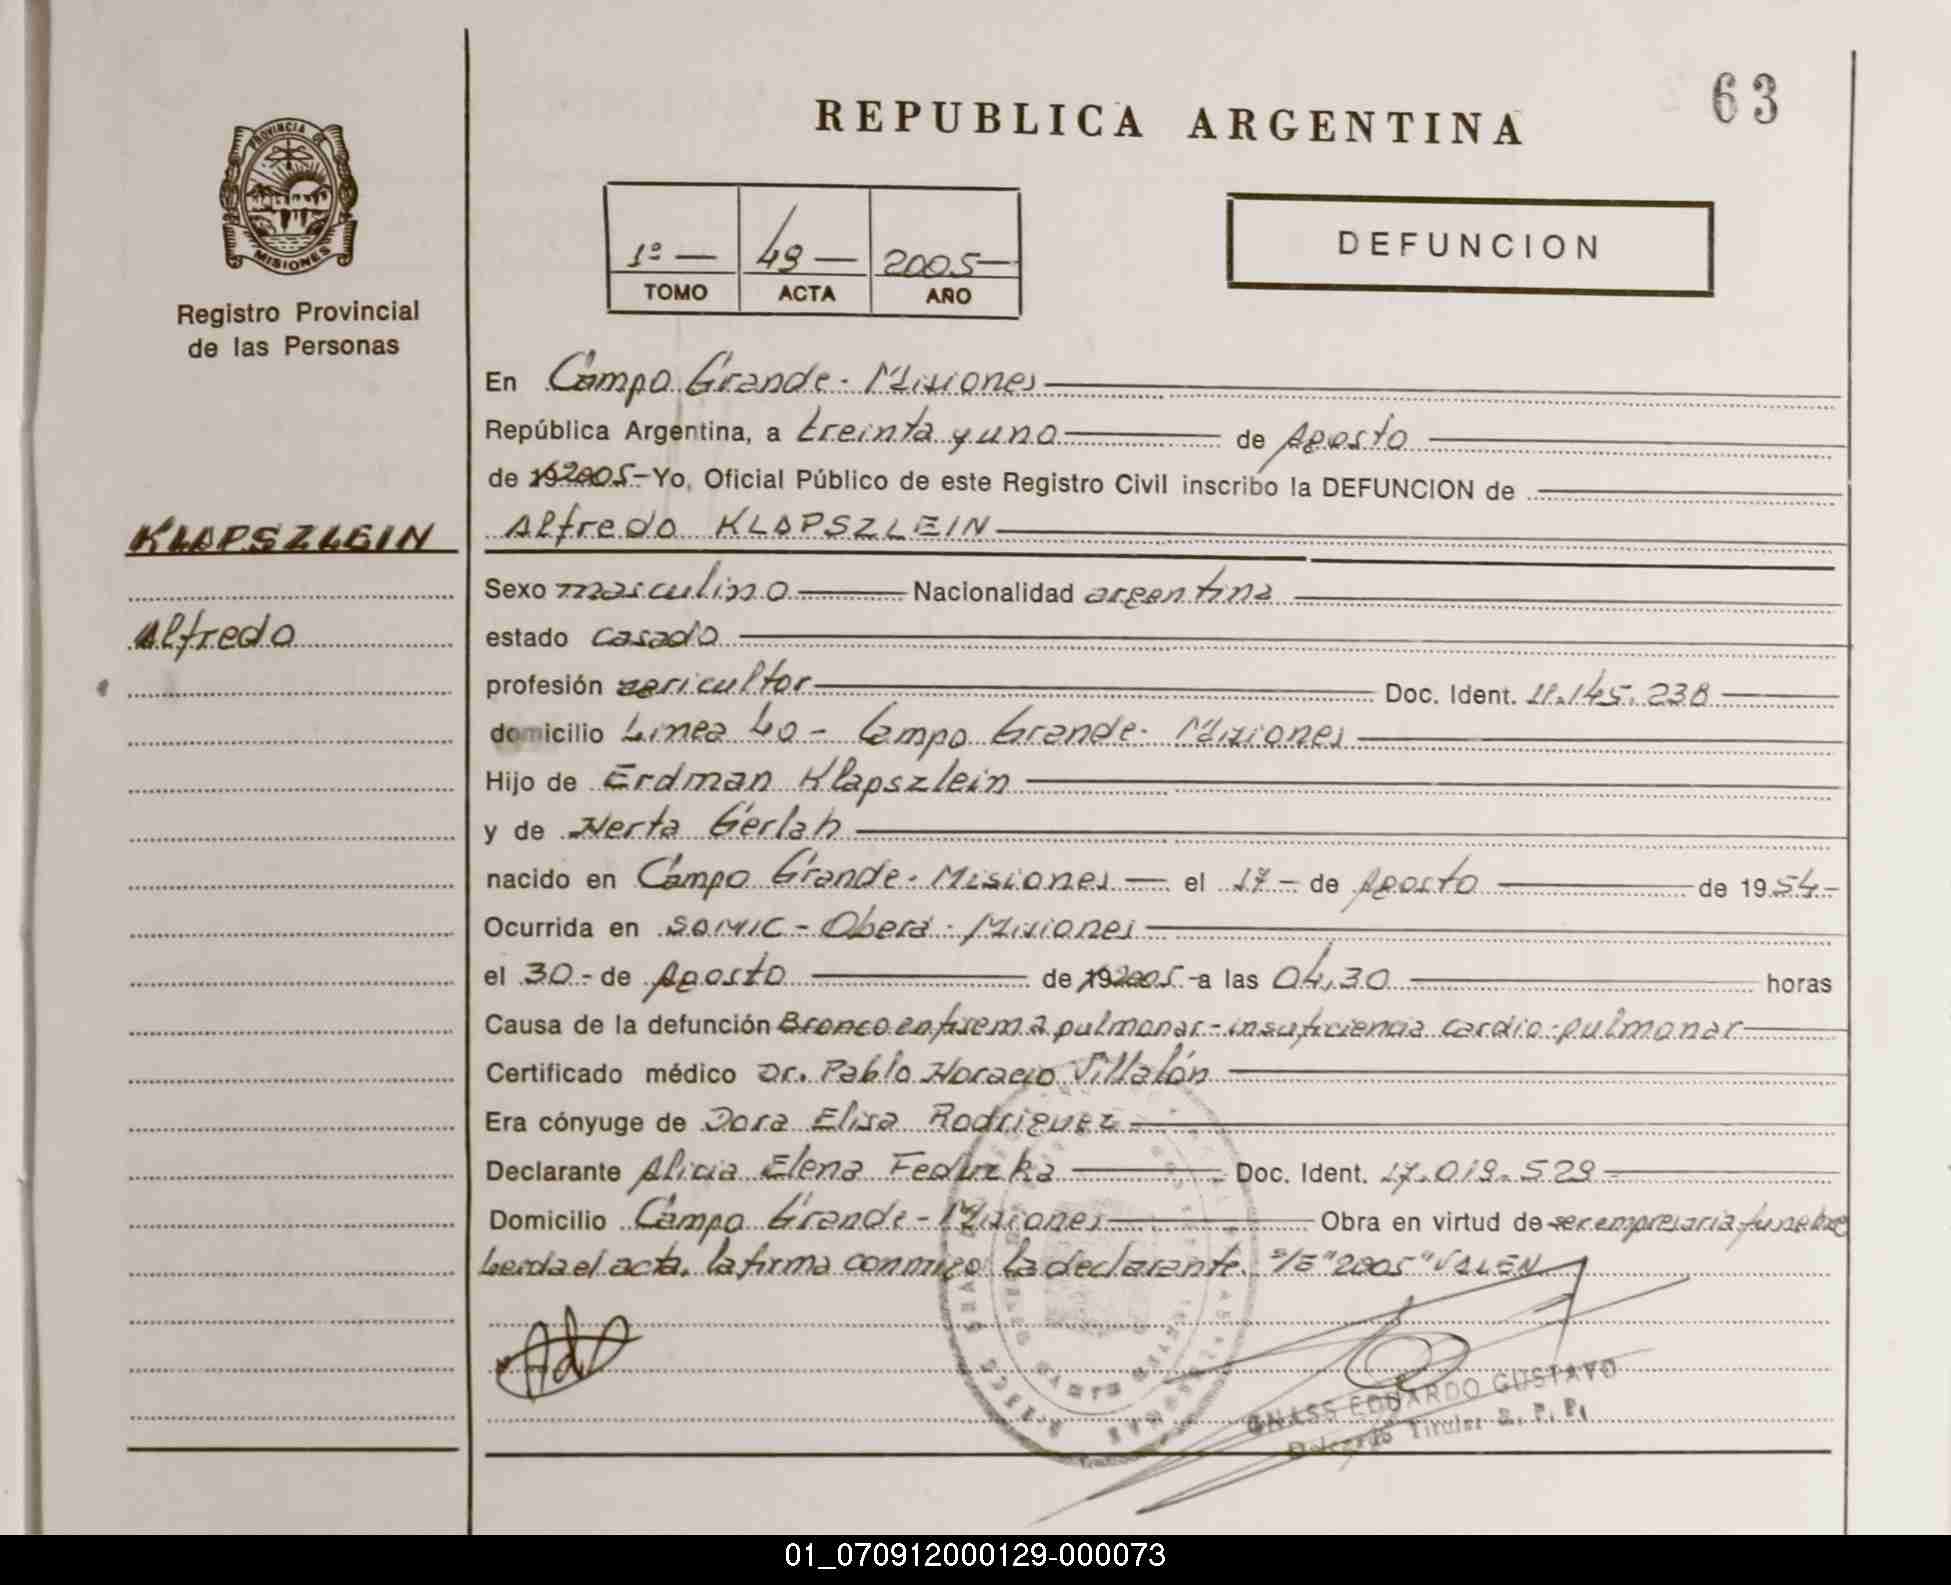 63
REPUBLICA ARGENTINA
PROVINCIA DE
MISIONES
Registro Provincial
de las Personas
1º — 49 — 2005 —
TOMO ACTA AÑO
DEFUNCION
KLAPSZLEIN
Alfredo
En Campo Grande - Misiones
República Argentina, a treinta y uno de Agosto
de 192005 - Yo, Oficial Público de este Registro Civil inscribo la DEFUNCION de
Alfredo KLAPSZLEIN
Sexo masculino Nacionalidad argentina
estado casado
profesión agricultor Doc. Ident. 11.145.238
domicilio Linea 40 - Campo Grande - Misiones
Hijo de Erdman Klapszlein
y de Herta Gerlah
nacido en Campo Grande - Misiones — el 17 - de Agosto de 1954 -
Ocurrida en SAMIC - Oberá - Misiones
el 30 - de Agosto de 192005 - a las 04,30 horas
Causa de la defunción Bronco enfisema pulmonar - insuficiencia cardio-pulmonar
Certificado médico Dr. Pablo Horacio Villalón
Era cónyuge de Dora Elisa Rodriguez
Declarante Alicia Elena Feduzka Doc. Ident. 17.019.529
Domicilio Campo Grande - Misiones Obra en virtud de ser empresaria funebre
Leida el acta, la firma conmigo la declarante. S/E "2005" VALEN
GNASS EDUARDO GUSTAVO
Delegado Titular R. P. P.
01_070912000129-000073